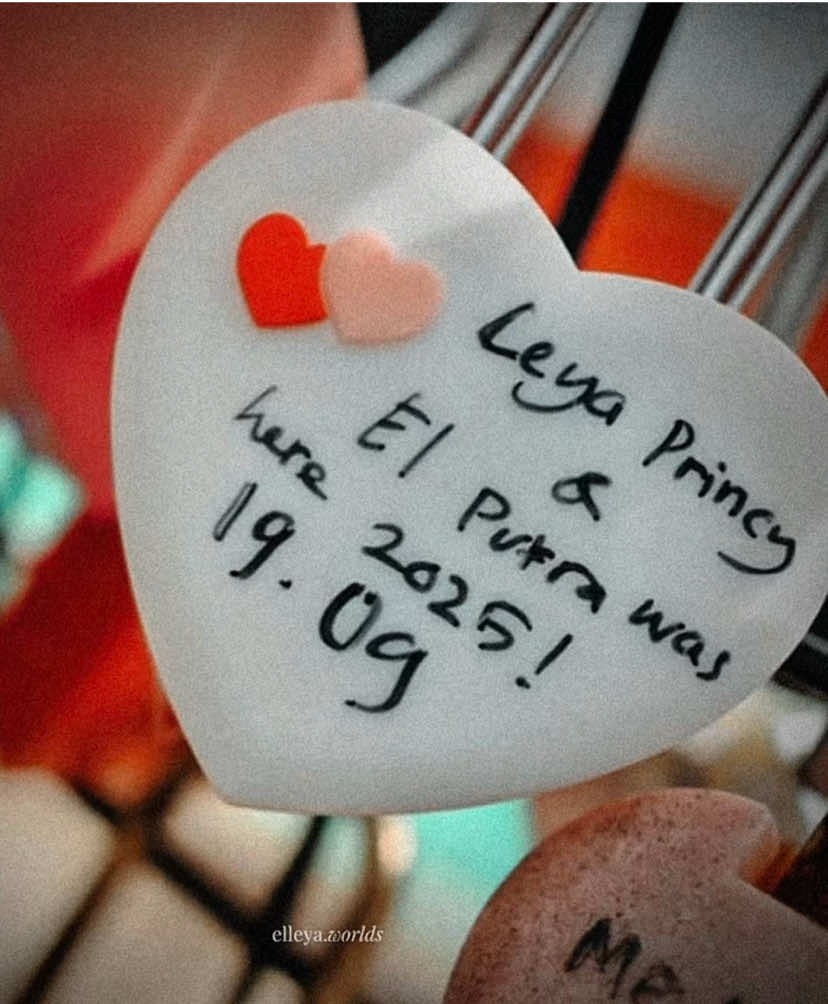 Leya Princy
&
El Putra was
here 2025!
19.09
elleya.worlds